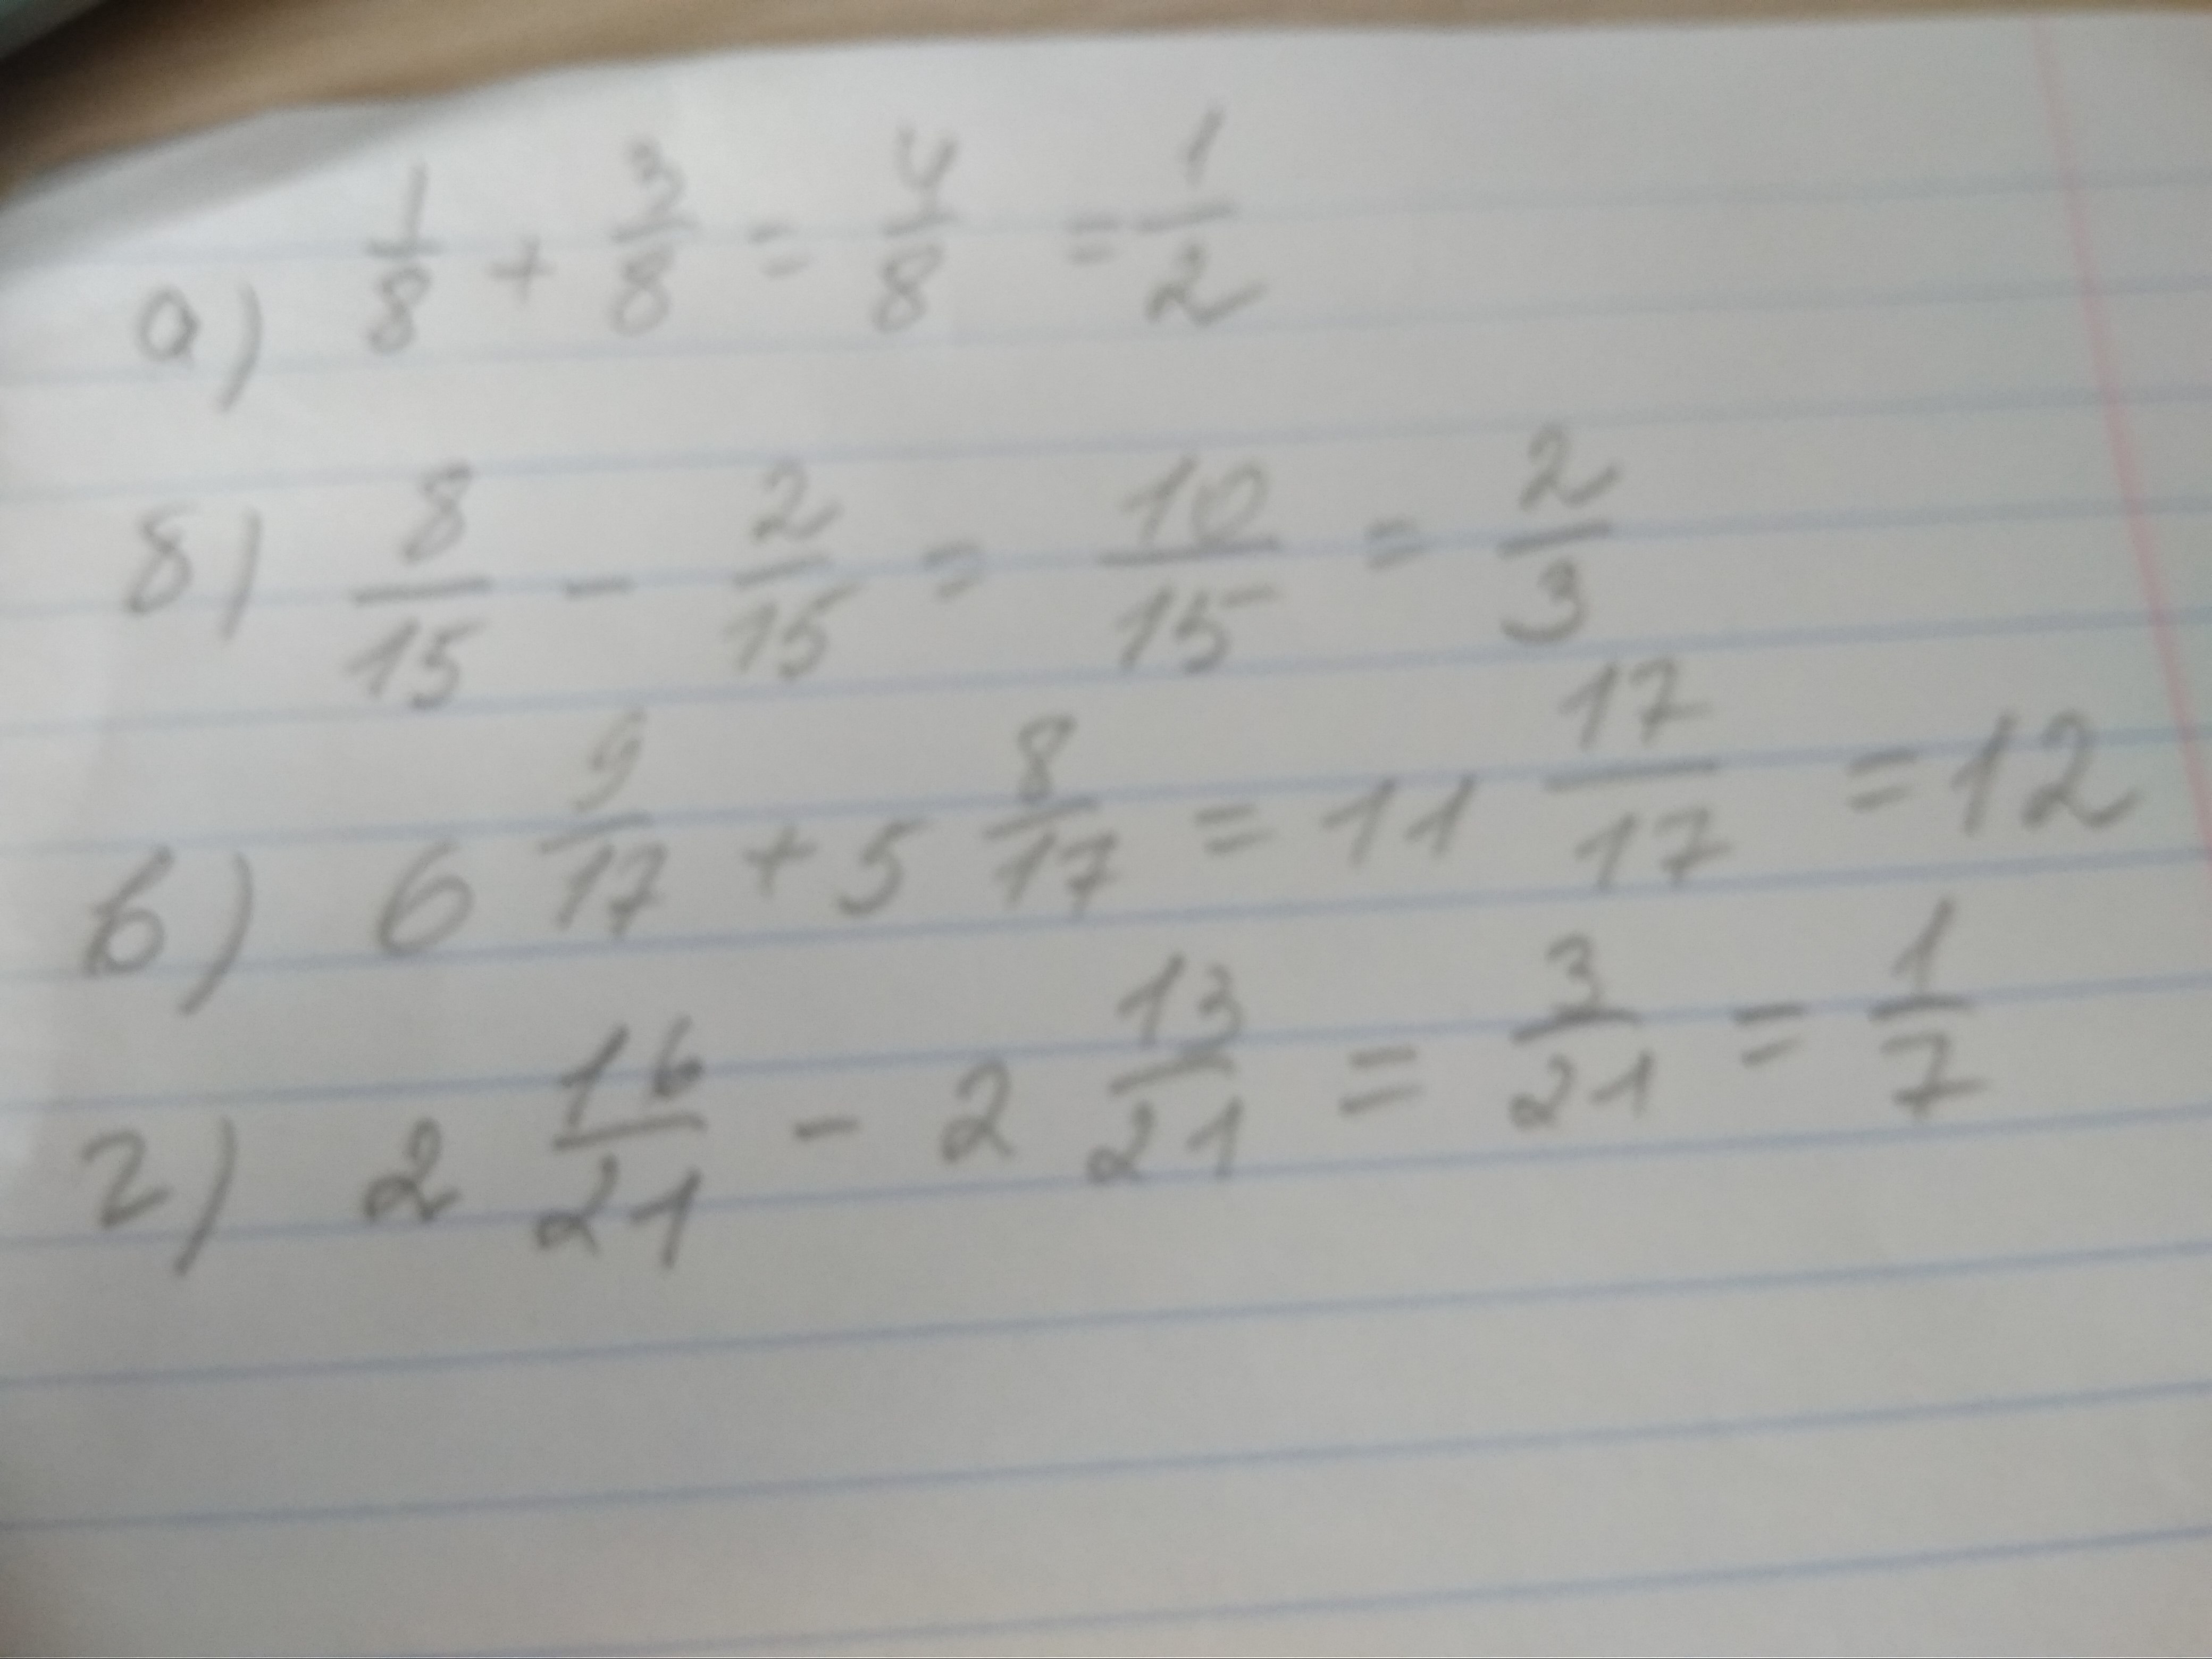 а) 1/8 + 3/8 = 4/8 = 1/2
б) 8/15 - 2/15 = 10/15 = 2/3
в) 6 9/17 + 5 8/17 = 11 17/17 = 12
г) 2 16/21 - 2 13/21 = 3/21 = 1/7